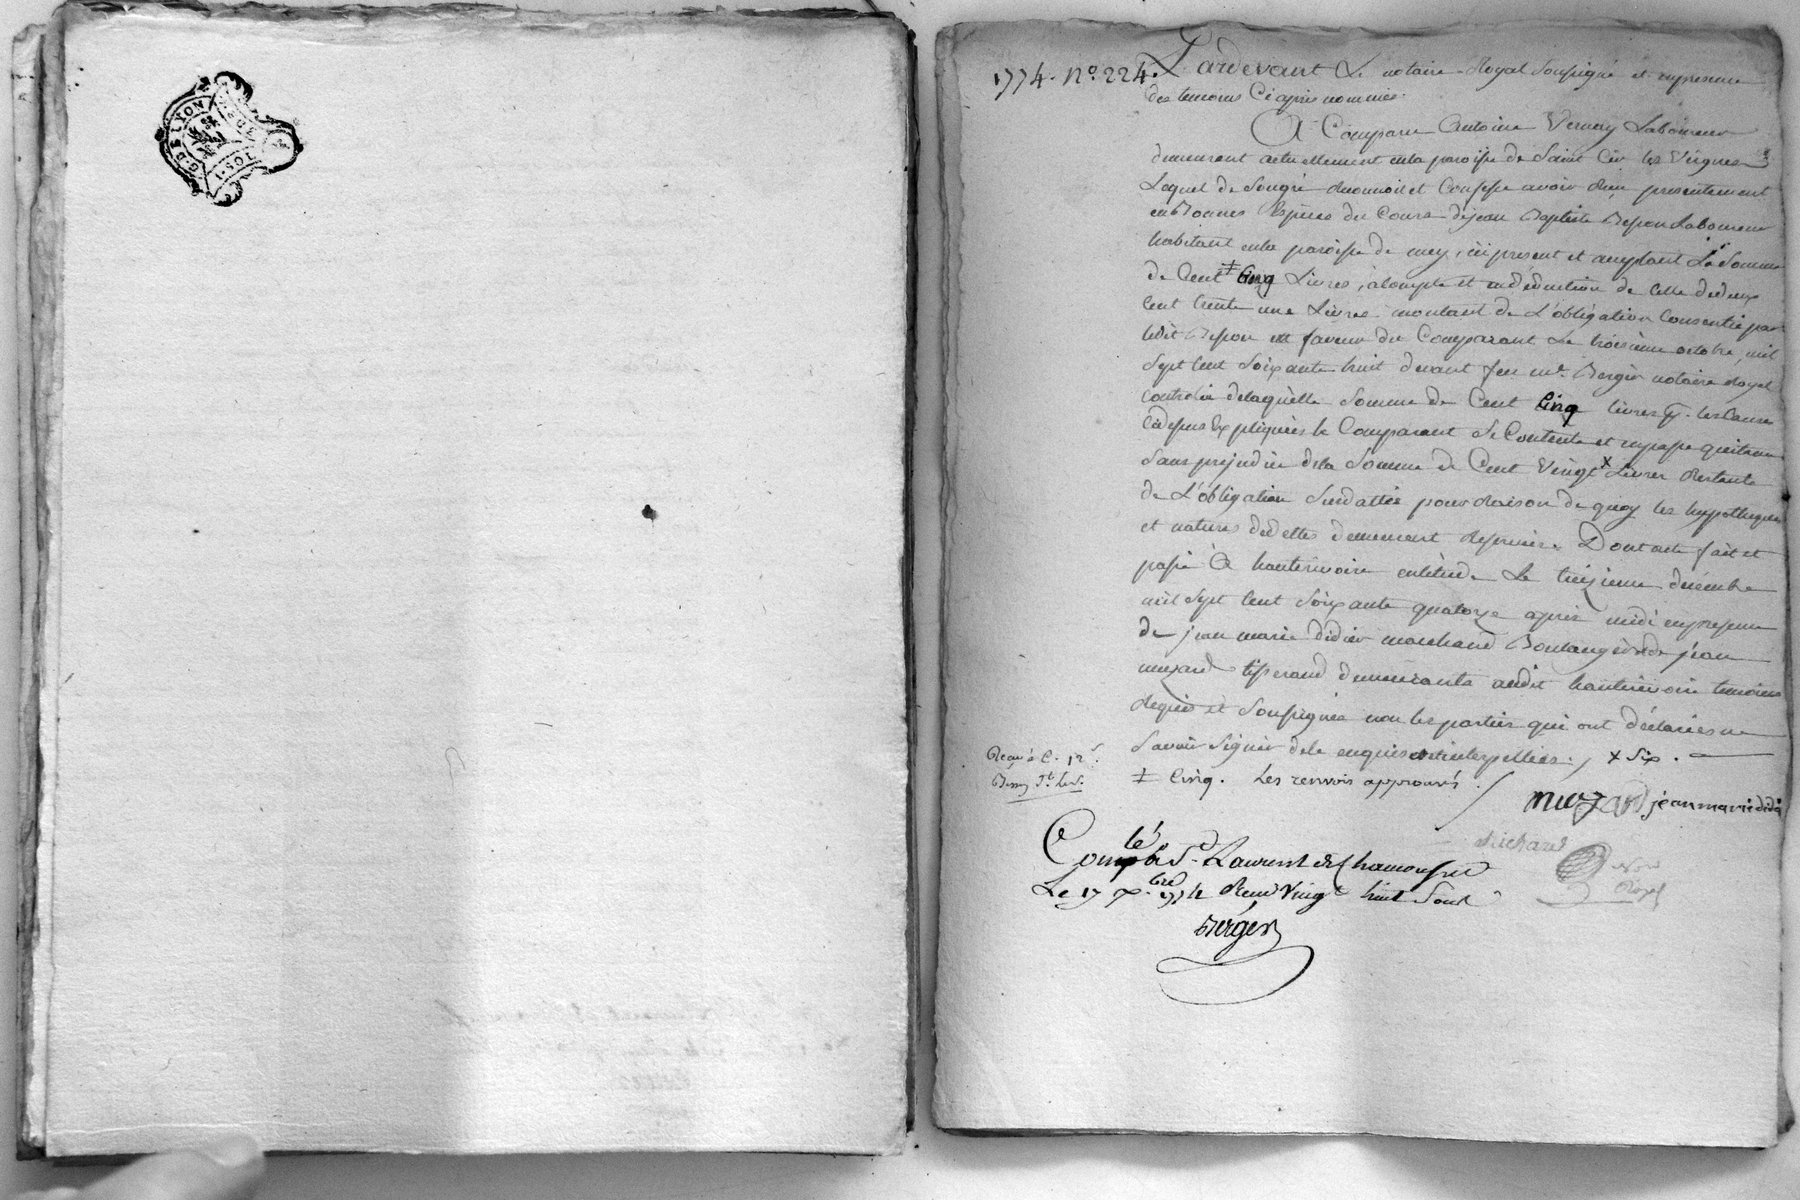 G. DE LYON
1. SOL.
1774. N.º 224.
Pardevant Le notaire Royal Soussigné et en presence
des temoins Cy apres nommés.
A Comparu Antoine Verney Laboureur
demeurant actuellement en la paroisse de Saint Cir les Vignes
Lequel de Son gré Reconnoit et Confesse avoir Reçu presentement
en Bonnes Espèces du Cours de jean Baptiste Besson Laboureur
habitant en la paroisse de mey, icy present et acceptant La Somme
de Cent ‡ Cinq Livres, a Compte et en déduction de Celle de deux
Cent trente une Livres montant de L'obligation Consentie par
ledit Besson en faveur du Comparant Le troisieme octobre, mil
Sept Cent Soixante huit devant feu me. Bergér notaire Royal
Controlée de laquelle Somme de Cent Cinq livres p. les Causes
Cy dessus Expliquées le Comparant Se Contente et en passe quittance
Sans prejudice de la Somme de Cent Vingt x Livres Restante
de L'obligation Sus dattée pour Raison de quoy les hypotheques
et natures de dettes demeurent Reservées. Dont acte fait et
passé à hauterivoire en letude Le treizieme decembre
mil Sept Cent Soixante quatorze après midi en presence
de jean marie didier marchand Boulangér et de jean
muzard tisserand demeurants audit hauterivoire temoins
Requis et Soussignés non les parties qui ont déclarées ne
Savoir Signer de le enquis et interpellées. / x Six.
‡ Cinq. Les renvois approuvés /
muzard jean marie didié
Richard
Nore
Royal
Con.lé à St. Laurent de Chamousset
Le 17 Xbre 1774 Reçu Vingt huit Sous
Bergér